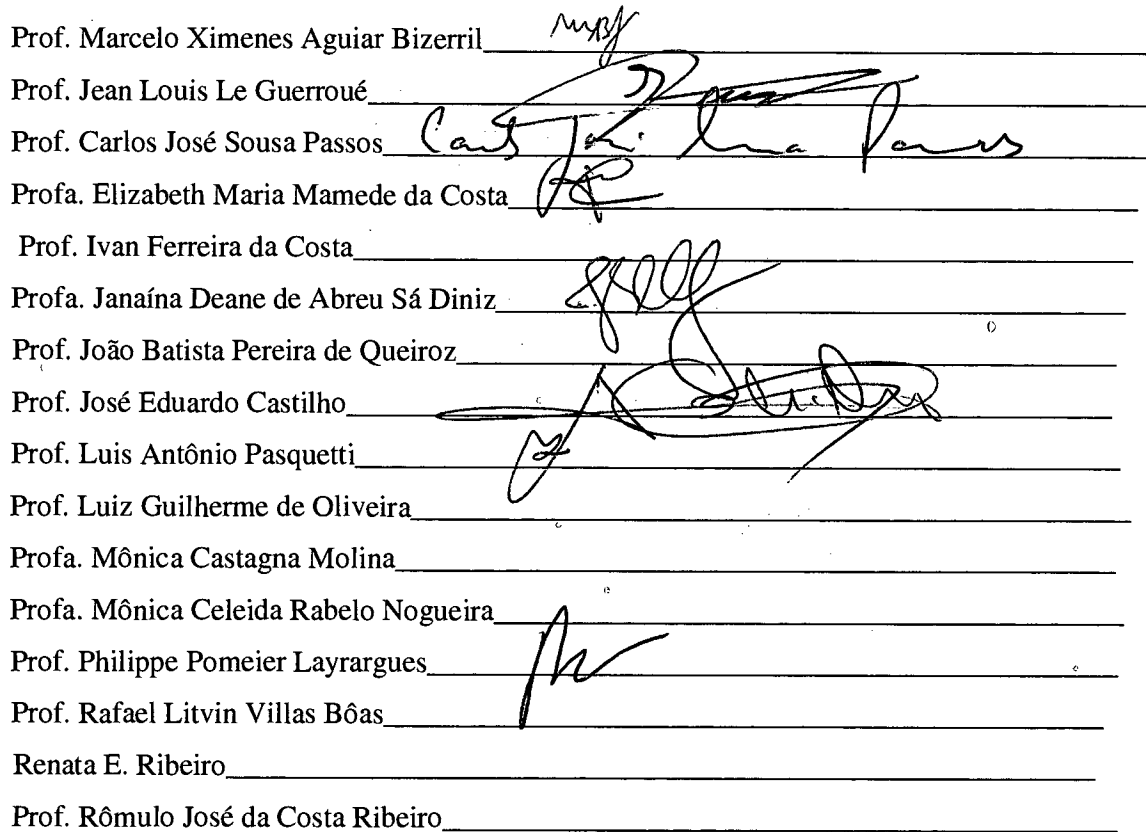 Prof. Marcelo Ximenes Aguiar Bizerril
Prof. Jean Louis Le Guerroué
Prof. Carlos José Sousa Passos
Profa. Elizabeth Maria Mamede da Costa
Prof. Ivan Ferreira da Costa
Profa. Janaína Deane de Abreu Sá Diniz
Prof. João Batista Pereira de Queiroz
Prof. José Eduardo Castilho
Prof. Luis Antônio Pasquetti
Prof. Luiz Guilherme de Oliveira
Profa. Mônica Castagna Molina
Profa. Mônica Celeida Rabelo Nogueira
Prof. Philippe Pomeier Layrargues
Prof. Rafael Litvin Villas Bôas
Renata E. Ribeiro
Prof. Rômulo José da Costa Ribeiro